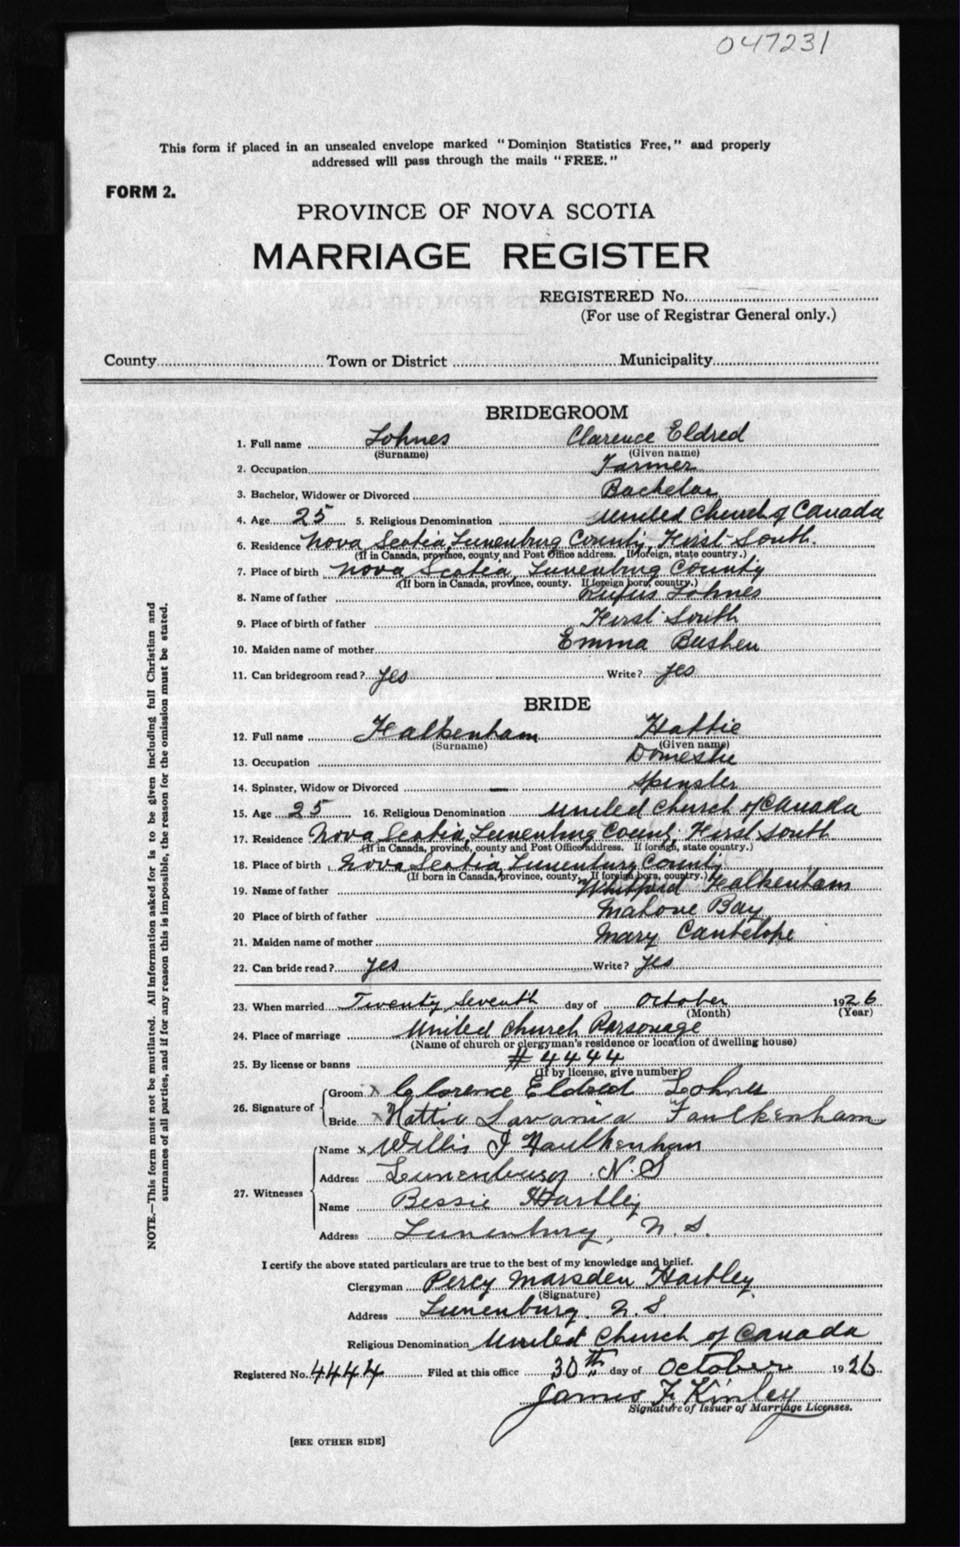 047231
This form if placed in an unsealed envelope marked "Dominion Statistics Free," and properly
addressed will pass through the mails "FREE."
FORM 2.
PROVINCE OF NOVA SCOTIA
MARRIAGE REGISTER
REGISTERED No.
(For use of Registrar General only.)
County Town or District Municipality
BRIDEGROOM
1. Full name Lohnes Clarence Eldred
(Surname) (Given name)
2. Occupation Farmer
3. Bachelor, Widower or Divorced Bachelor
4. Age 25 5. Religious Denomination United Church of Canada
6. Residence Nova Scotia, Lunenburg County, First South.
(If in Canada, province, county and Post Office address. If foreign, state country.)
7. Place of birth Nova Scotia, Lunenburg County
(If born in Canada, province, county. If foreign born, country.)
8. Name of father Rufus Lohnes
9. Place of birth of father First South
10. Maiden name of mother Emma Bushen
11. Can bridegroom read? yes Write? yes
BRIDE
12. Full name Falkenham Hattie
(Surname) (Given name)
13. Occupation Domestic
14. Spinster, Widow or Divorced Spinster
15. Age 25 16. Religious Denomination United Church of Canada
17. Residence Nova Scotia, Lunenburg County First South
(If in Canada, province, county and Post Office address. If foreign, state country.)
18. Place of birth Nova Scotia, Lunenburg County
(If born in Canada, province, county. If foreign born, country.)
19. Name of father Whitford Falkenham
20 Place of birth of father Mahone Bay
21. Maiden name of mother Mary Cantelope
22. Can bride read? yes Write? yes
23. When married Twenty Seventh day of October 1926
(Month) (Year)
24. Place of marriage United Church Parsonage
(Name of church or clergyman's residence or location of dwelling house)
25. By license or banns #4444
(If by license, give number)
26. Signature of
Groom x Clarence Eldred Lohnes
Bride x Hattie Lavania Faulkenham
27. Witnesses
Name x Willis J Faulkenham
Address Lunenburg N.S
Name Bessie Hartley
Address Lunenburg, N.S.
I certify the above stated particulars are true to the best of my knowledge and belief.
Clergyman Percy Marsden Hartley
(Signature)
Address Lunenburg, N.S
Religious Denomination United Church of Canada
Registered No. 4444 Filed at this office 30th day of October 1926
James F. Kinley
Signature of Issuer of Marriage Licenses.
[SEE OTHER SIDE]
NOTE.—This form must not be mutilated. All information asked for is to be given including full Christian and
surnames of all parties, and if for any reason this is impossible, the reason for the omission must be stated.